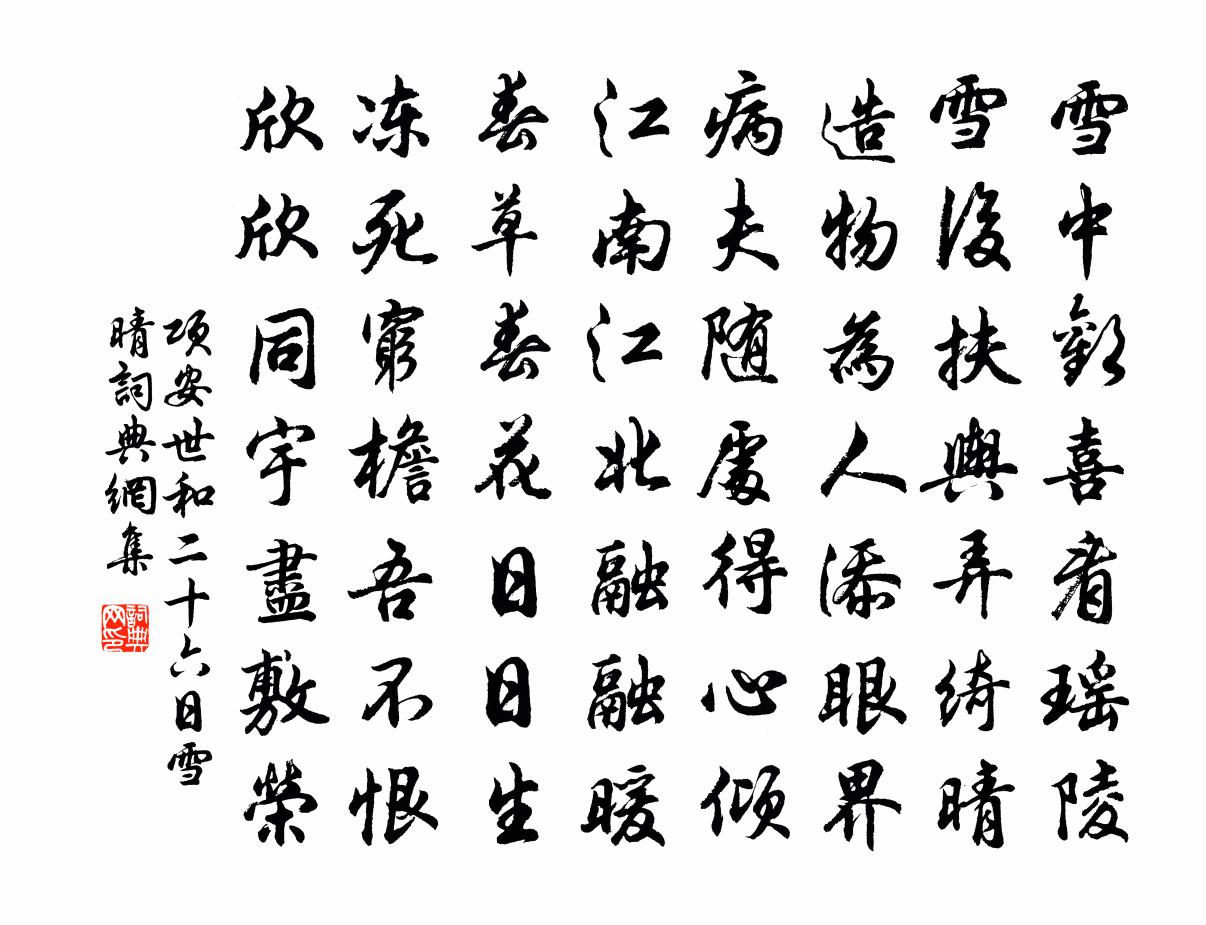 雪中歡喜看瑶陵
雪後扶輿弄绮晴
造物為人添眼界
病夫随處得心倾
江南江北融融暖
春草春花日日生
冻死窮檐吾不恨
欣欣同宇盡敷榮
项安世和二十六日雪
晴詞典網集
詞典网印